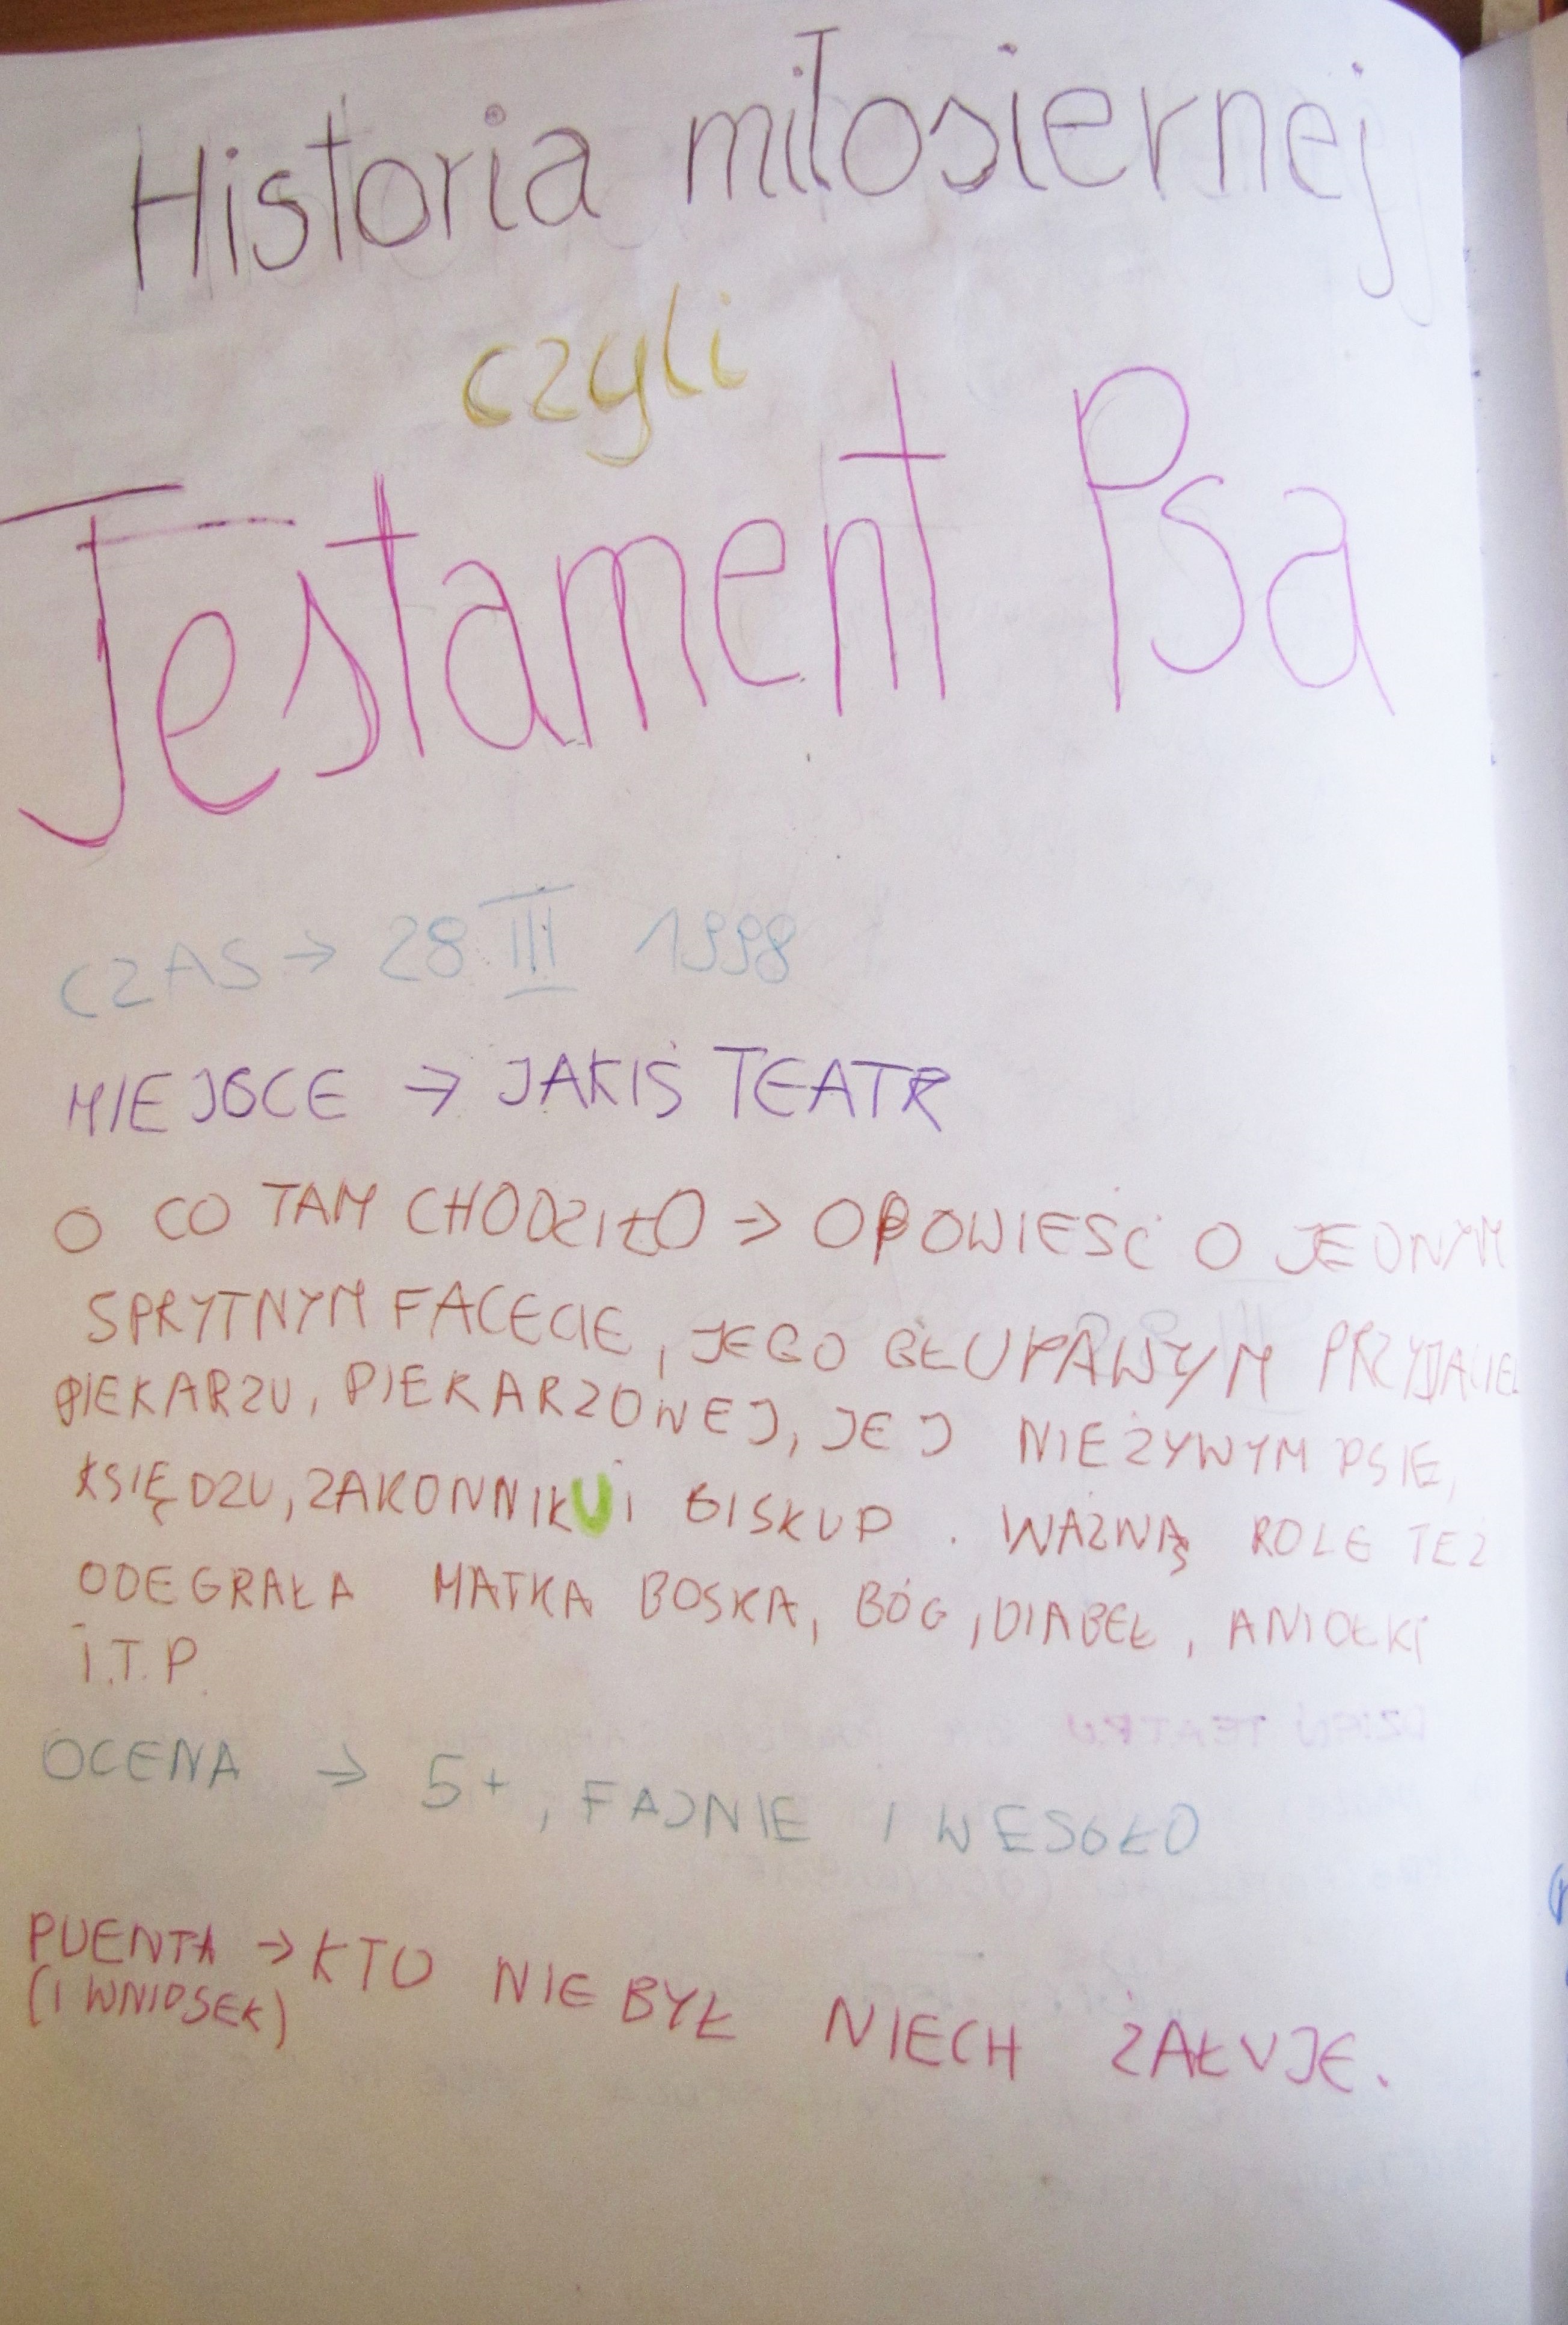 Historia miłosiernej
czyli
Testament Psa
CZAS → 28 III 1998
MIEJSCE → JAKIŚ TEATR
O CO TAM CHODZIŁO → OPOWIEŚĆ O JEDNYM
SPRYTNYM FACECIE, JEGO GŁUPAWYM PRZYJACIEL
PIEKARZU, PIEKARZOWEJ, JEJ NIEŻYWYM PSIE,
KSIĘDZU, ZAKONNIKU i BISKUP. WAŻNĄ ROLE TEŻ
ODEGRAŁA MATKA BOSKA, BÓG, DIABEŁ, ANIOŁKI
I.T.P.
OCENA → 5+, FAJNIE I WESOŁO
PUENTA → KTO NIE BYŁ NIECH ŻAŁUJE.
(I WNIOSEK)